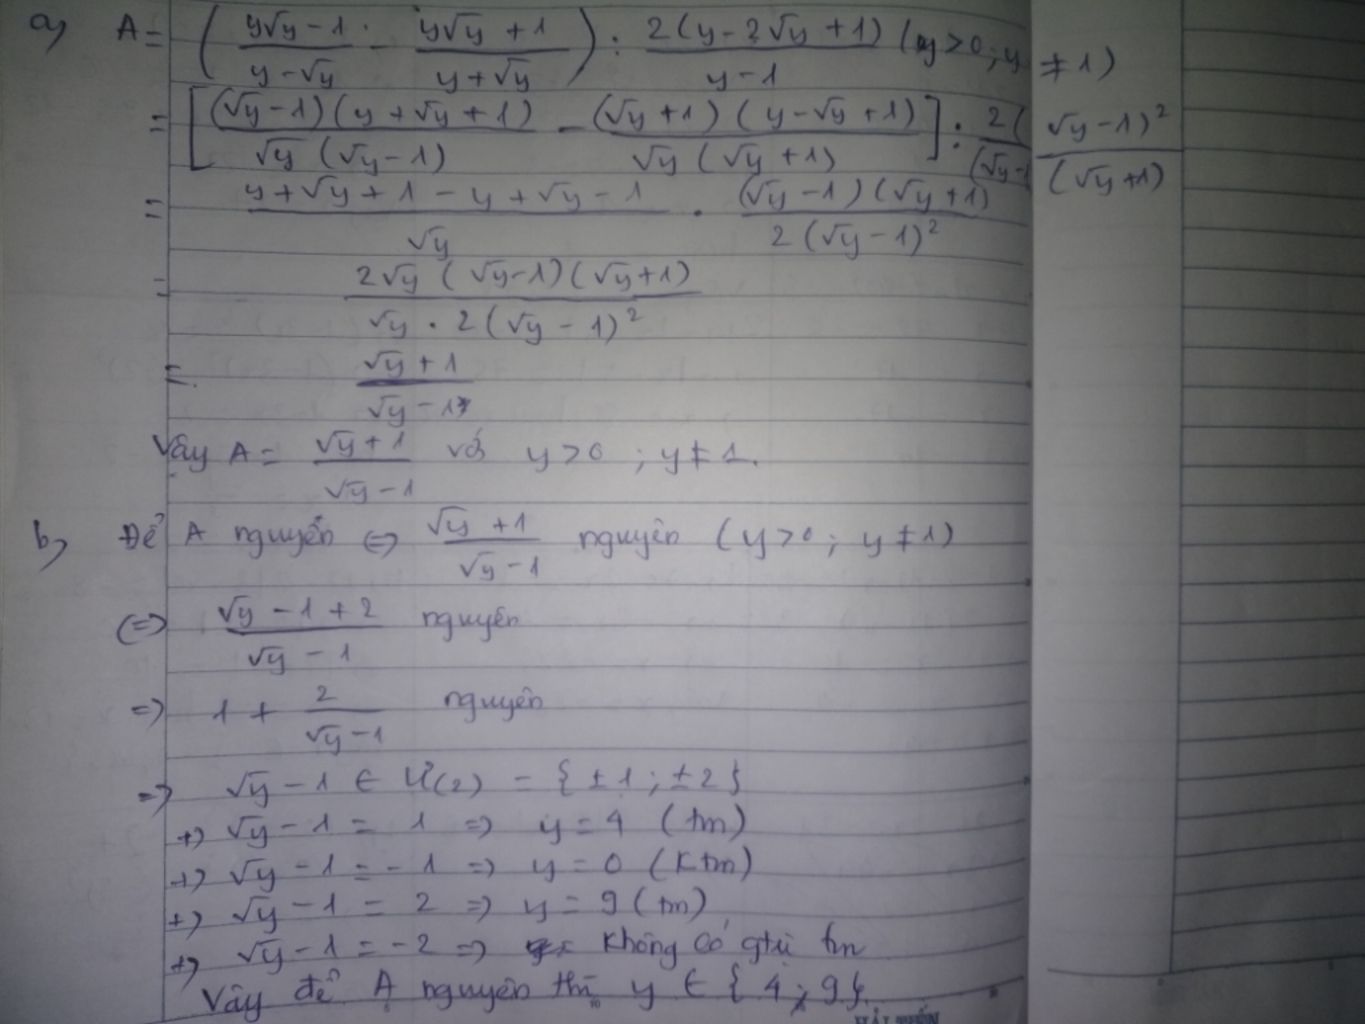 a) A = ( (y√y - 1)/(y - √y) - (y√y + 1)/(y + √y) ) : 2(y - 2√y + 1)/(y - 1) (y > 0 ; y ≠ 1)
= [ (√y - 1)(y + √y + 1)/(√y (√y - 1)) - (√y + 1)(y - √y + 1)/(√y (√y + 1)) ] : 2(√y - 1)²/((√y - 1)(√y + 1))
= (y + √y + 1 - y + √y - 1)/√y . (√y - 1)(√y + 1)/(2(√y - 1)²)
= 2√y (√y - 1)(√y + 1)/(√y . 2(√y - 1)²)
= (√y + 1)/(√y - 1)
Vậy A = (√y + 1)/(√y - 1) với y > 0 ; y ≠ 1.
b) Để A nguyên <=> (√y + 1)/(√y - 1) nguyên (y > 0 ; y ≠ 1)
(=> (√y - 1 + 2)/(√y - 1) nguyên
=> 1 + 2/(√y - 1) nguyên
=> √y - 1 ∈ Ư(2) = { ±1 ; ±2 }
+) √y - 1 = 1 => y = 4 (tm)
+) √y - 1 = -1 => y = 0 (ktm)
+) √y - 1 = 2 => y = 9 (tm)
+) √y - 1 = -2 => không có gtrị tm
Vậy để A nguyên thì y ∈ { 4 ; 9 }.
HẢI TIẾN